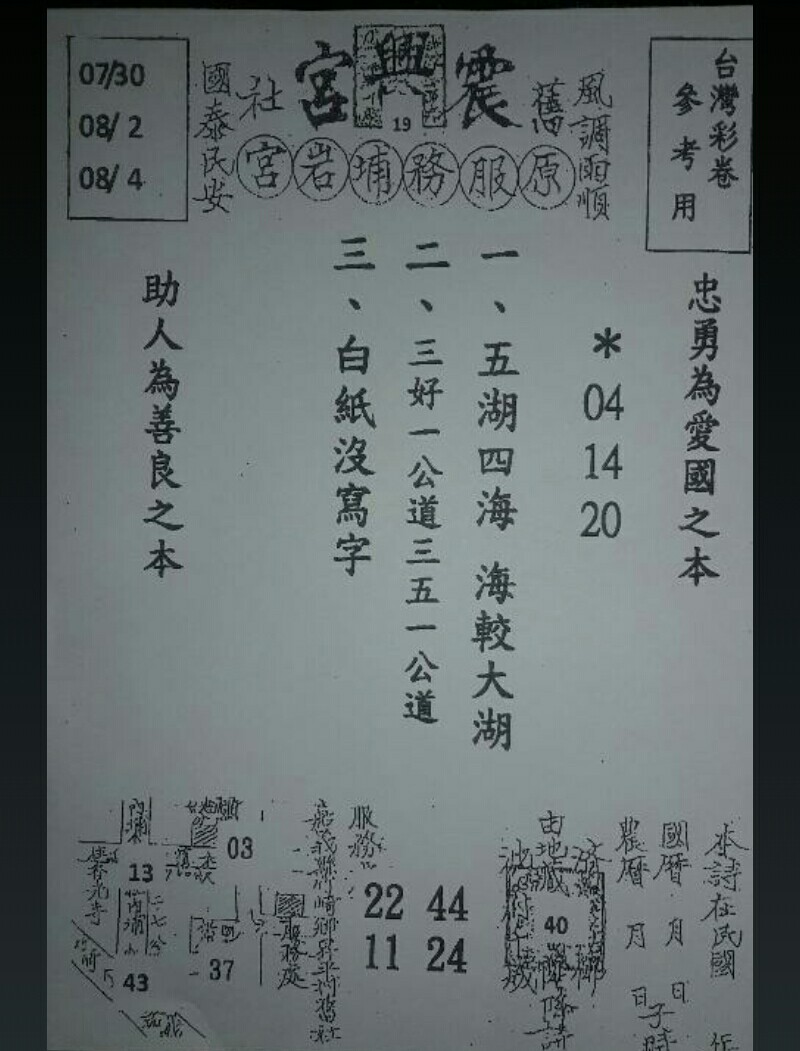 台灣彩卷
參考用
風調雨順
舊
震興宮
19
社
國泰民安
原服務埔岩宮
07/30
08/2
08/4
忠勇為愛國之本
*
04
14
20
一、五湖四海 海較大湖
二、三好一公道三五一公道
三、白紙沒寫字
助人為善良之本
本詩在民國 年
國曆 月 日
農曆 月 日子時
由地藏
40
服務
22 44
11 24
服務處
03
13
37
43